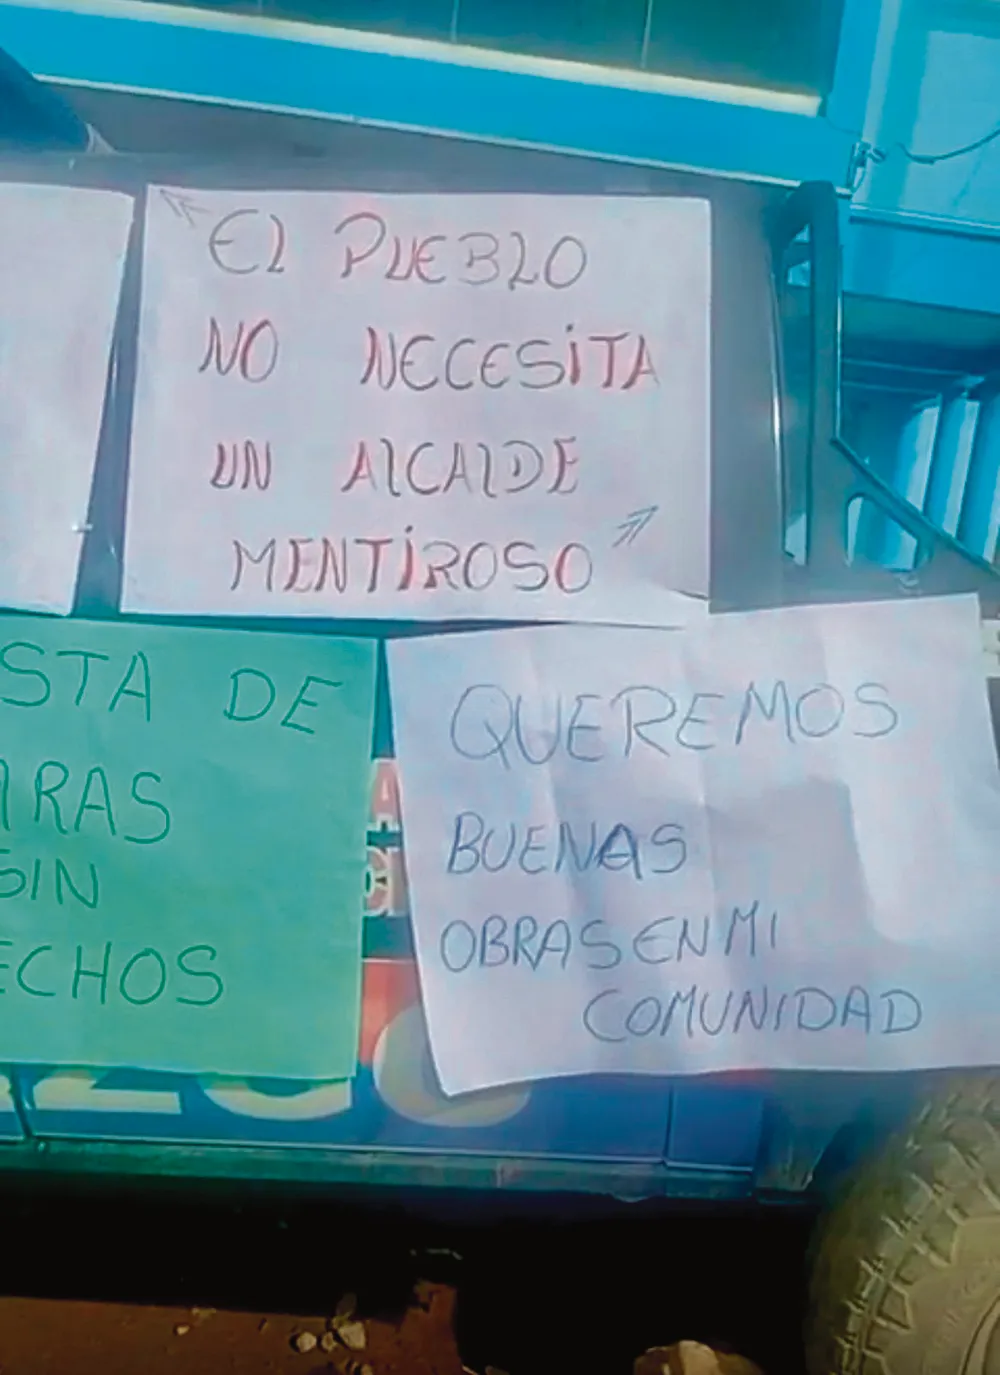 EL PUEBLO
NO NECESITA
UN ALCALDE
MENTIROSO
STA DE
RAS
SIN
ECHOS
QUEREMOS
BUENAS
OBRAS EN MI
COMUNIDAD